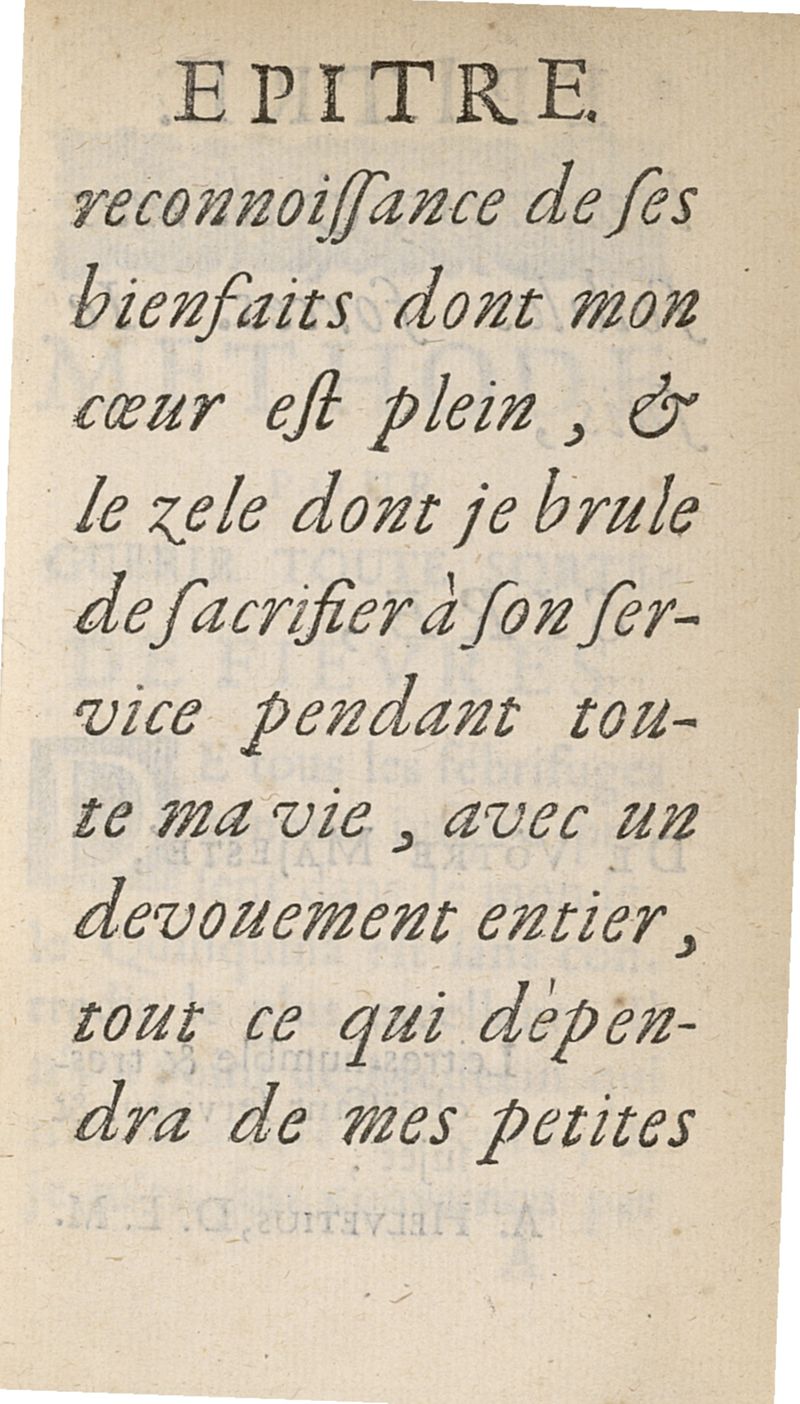 EPITRE.
reconnoiſſance de ſes
bienfaits dont mon
cœur eſt plein, &
le zele dont je brule
de ſacrifier à ſon ſer-
vice pendant tou-
te ma vie, avec un
devouement entier,
tout ce qui dèpen-
dra de mes petites